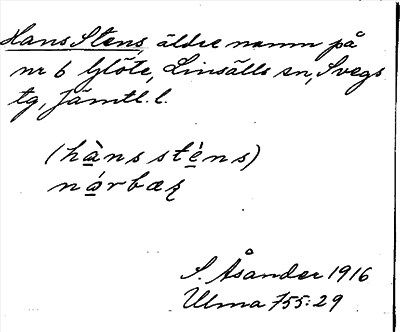 Hans Stens, äldre namn på
nr 6 Glöte, Linsälls sn, Svegs
tg, Jämtl. l.
(hàns sténs)
nórbæk
S. Åsander 1916
Ulma 755:29